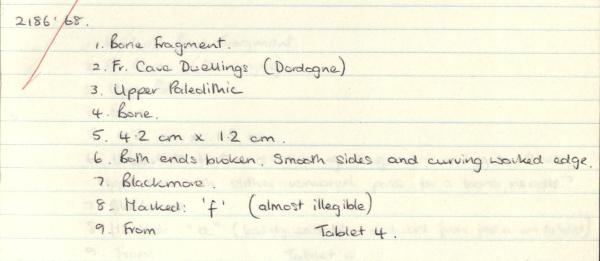 2186'68.
1. Bone Fragment.
2. Fr. Cave Dwellings (Dordogne)
3. Upper Paleolithic
4. Bone.
5. 4.2 cm x 1.2 cm.
6. Both ends broken. Smooth sides and curving worked edge.
7. Blackmore.
8. Marked: 'f' (almost illegible)
9. From Tablet 4.